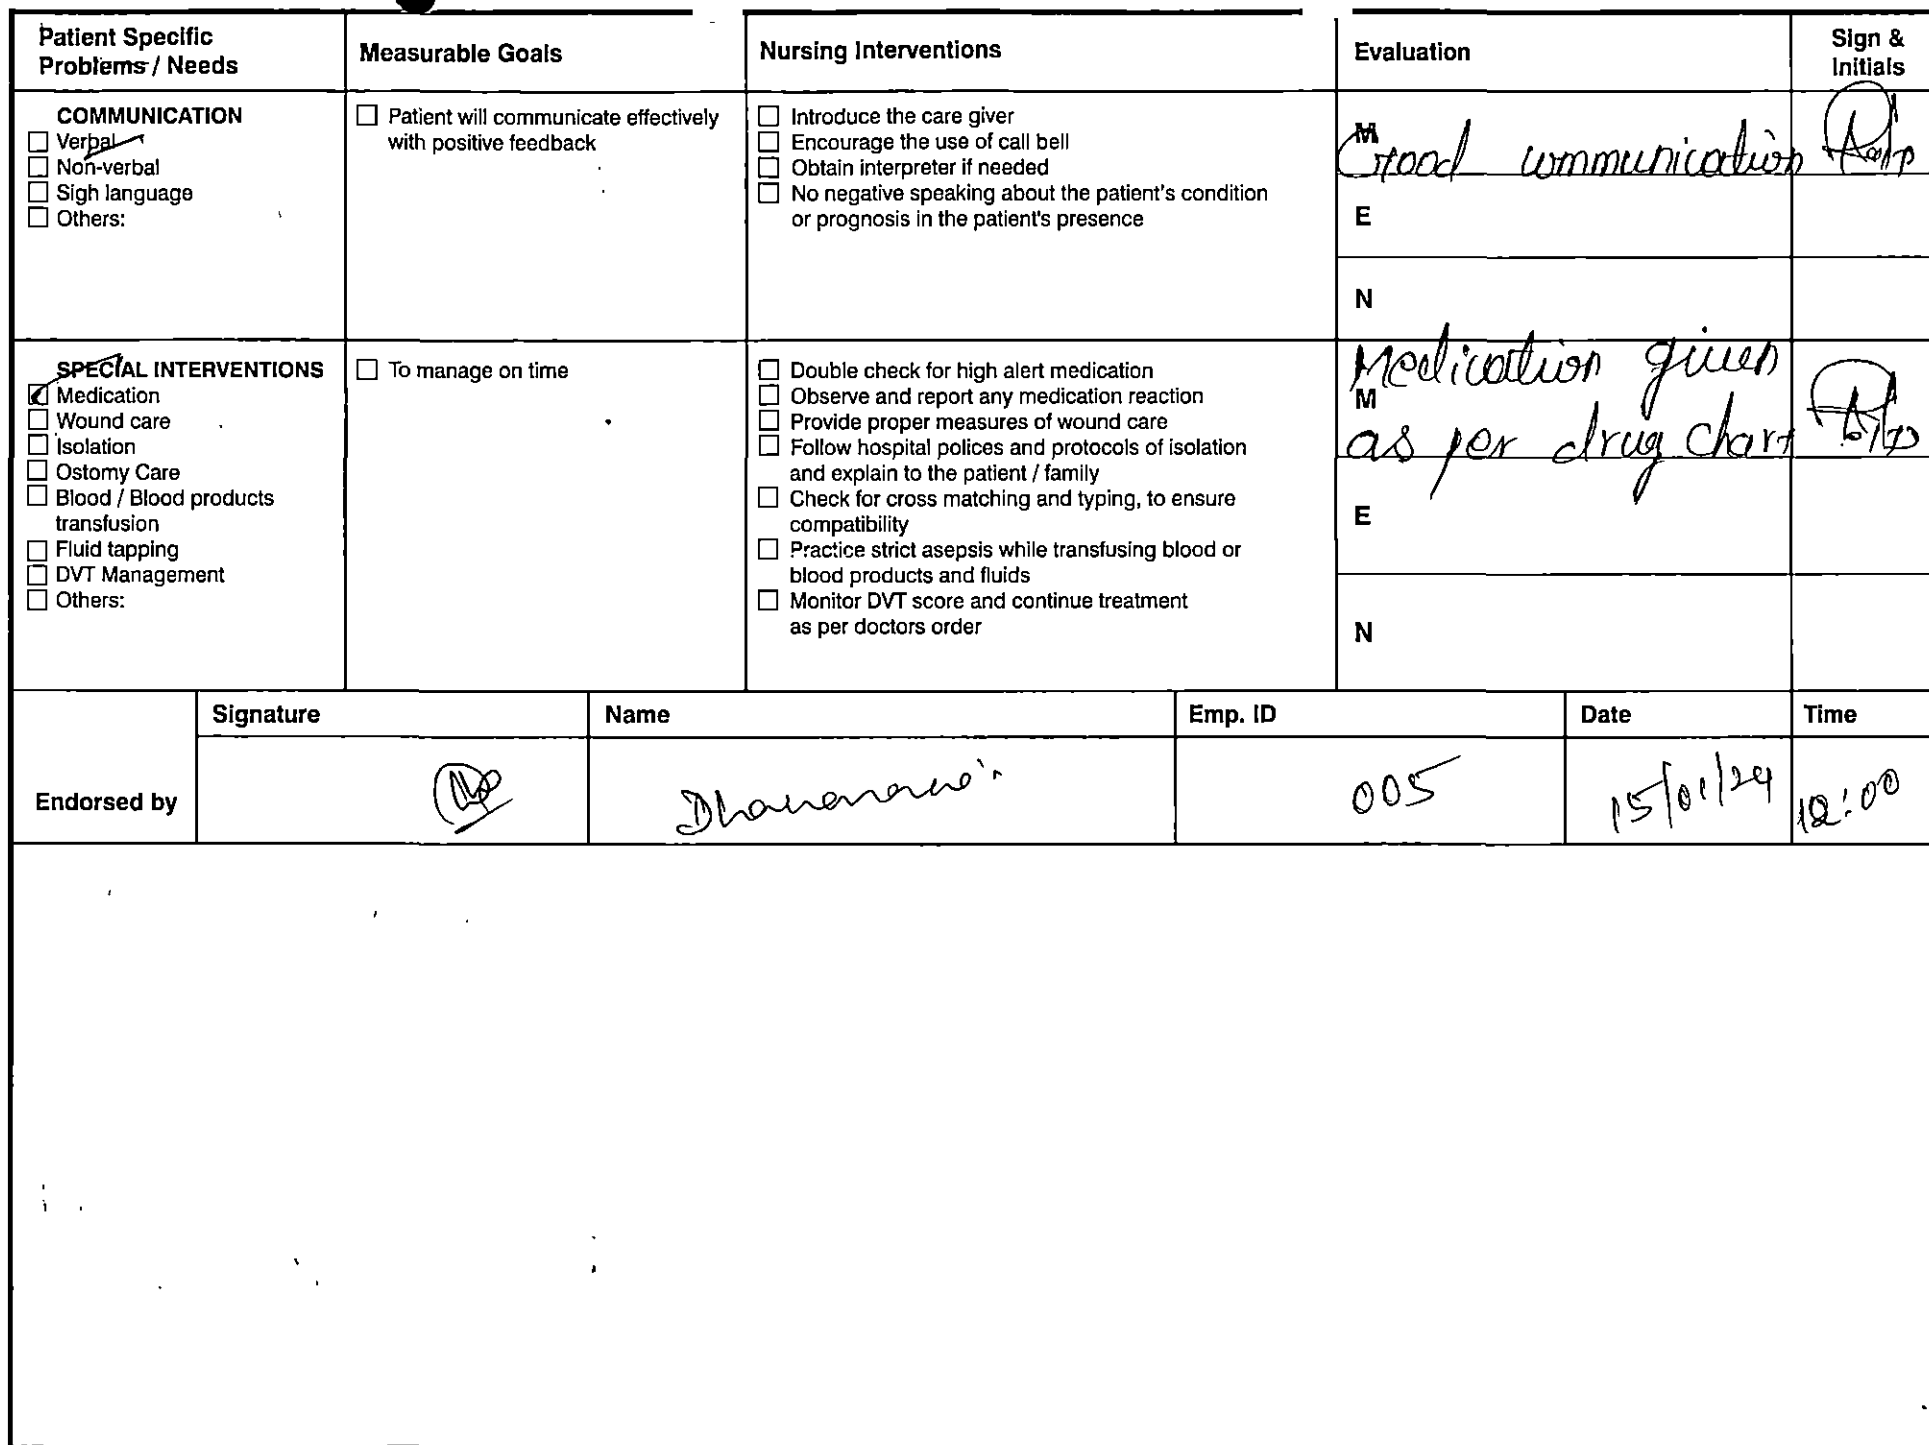 Patient Specific
Problems / Needs
Measurable Goals
Nursing Interventions
Evaluation
Sign &
Initials
COMMUNICATION
☐ Verbal
☐ Non-verbal
☐ Sigh language
☐ Others:
☐ Patient will communicate effectively
with positive feedback
☐ Introduce the care giver
☐ Encourage the use of call bell
☐ Obtain interpreter if needed
☐ No negative speaking about the patient's condition
or prognosis in the patient's presence
M
Good communication
E
N
SPECIAL INTERVENTIONS
☑ Medication
☐ Wound care
☐ Isolation
☐ Ostomy Care
☐ Blood / Blood products
transfusion
☐ Fluid tapping
☐ DVT Management
☐ Others:
☐ To manage on time
☐ Double check for high alert medication
☐ Observe and report any medication reaction
☐ Provide proper measures of wound care
☐ Follow hospital polices and protocols of isolation
and explain to the patient / family
☐ Check for cross matching and typing, to ensure
compatibility
☐ Practice strict asepsis while transfusing blood or
blood products and fluids
☐ Monitor DVT score and continue treatment
as per doctors order
Medication given
M
as per drug chart
E
N
Signature
Name
Emp. ID
Date
Time
Endorsed by
005
15/01/24
12:00